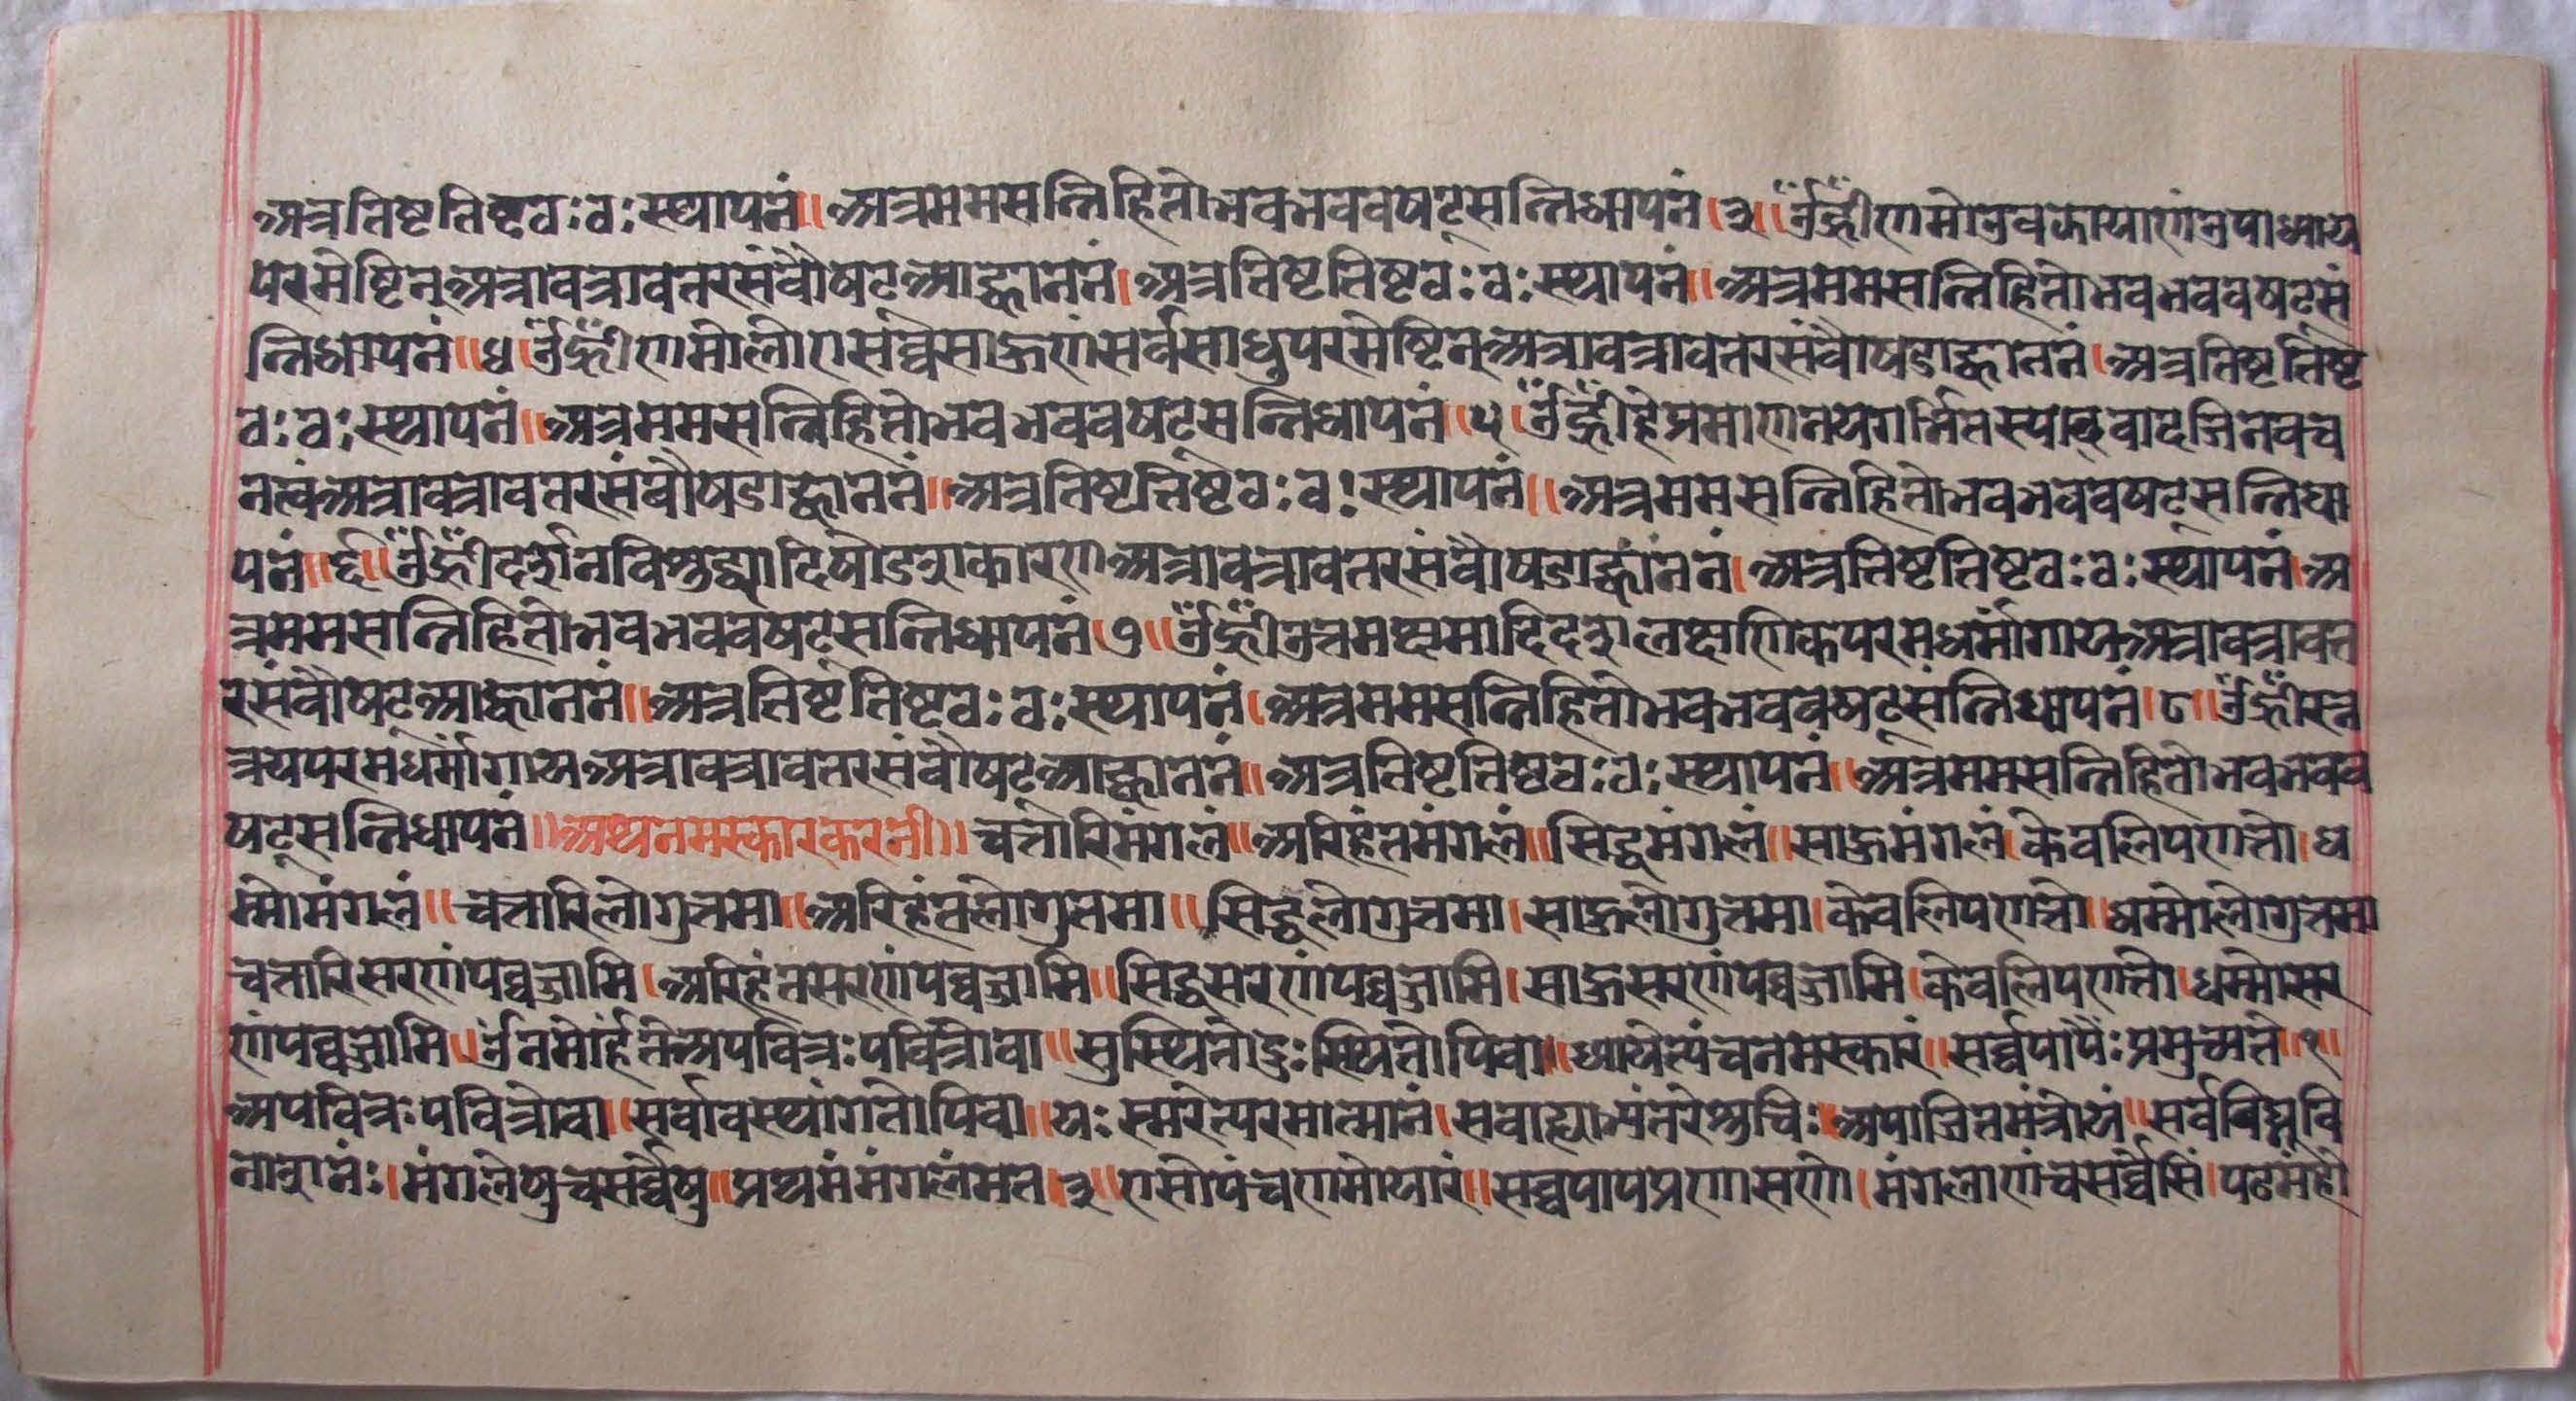 अत्रतिष्टतिष्टवः वः स्थापनं॥ अत्रममसन्निहितोभवभववषट्सन्निधापनं।३॥ ॐह्रींणमोउवज्झायाणंउपाध्याय
परमेष्टिन्अत्रावत्रावतरसंवौषटआह्वाननं। अत्रतिष्टतिष्टवः वः स्थापनं॥ अत्रममसन्निहितोभवभववषटसं
न्निधापनं॥४।ॐह्रींणमोलोएसर्व्वेसाहूणंसर्वसाधुपरमेष्टिन्अत्रावत्रावतरसंवौषडाह्वाननं।अत्रतिष्टतिष्ट
वः वः स्थापनं॥ अत्रममसन्निहितोभवभववषट्सन्निधापनं।५।ॐह्रींर्हंप्रमाणनयगर्भितस्याद्वादजिनवच
नत्वंअत्रावत्रावतरसंवौषडाह्वाननं॥ अत्रतिष्टतिष्टवः वः स्थापनं॥ अत्रममसन्निहितोभवभववषट्सन्निधा
पनं॥६॥ॐह्रींदर्शनविशुद्ध्यादिषोडशकारणअत्रावत्रावतरसंवौषडाह्वाननं। अत्रतिष्टतिष्टवः वः स्थापनं।अ
त्रममसन्निहितोभवभववषट्सन्निधापनं।७॥ॐह्रींउत्तमक्षमादिदशलक्षणिकपरमधर्मांगायअत्रावत्रावत
रसंवौषटआह्वाननं॥ अत्रतिष्टतिष्टवः वः स्थापनं।अत्रममसन्निहितोभवभववषट्सन्निधापनं।८॥ॐह्रींरत्न
त्रयपरमधर्मांगायअत्रावत्रावतरसंवौषटआह्वाननं॥ अत्रतिष्टतिष्टवः वः स्थापनं॥ अत्रममसन्निहितोभवभवव
षट्सन्निधापनं॥ अथनमस्कारकरनी॥ चत्तारिमंगलं॥ अरिहंतमंगलं॥ सिद्धमंगलं॥ साहूमंगलं।केवलिपणत्तो।ध
म्मोमंगलं॥ चत्तारिलोगुत्तमा॥ अरिहंतलोगुत्तमा॥ सिद्धलोगुत्तमा।साहूलोगुत्तमा।केवलिपणत्तो॥धम्मोलोगुत्तमा
चत्तारिसरणंपव्वजामि।अरिहंतसरणंपव्वजामि॥ सिद्धसरणंपव्वजामि।साहूसरणंपव्वजामि।केवलिपणत्तो।धम्मोसर
णंपव्वजामि॥ ॐनमोर्हतेअपवित्रः पवित्रोवा॥ सुस्थितोदुः स्थितोपिवा॥ ध्यायेत्पंचनमस्कारं॥सर्व्वपापैः प्रमुच्यते॥१॥
अपवित्रः पवित्रोवा॥ सर्वावस्थांगतोपिवा॥ यः स्मरेत्परमात्मानं।सवाह्याभ्यंतरेशुचिः॥अपाजितमंत्रोयं॥ सर्वविघ्नवि
नाशनंः।मंगलेषुचसर्व्वेषु॥ प्रथमंमंगलंमत।३॥ एसोपंचणमोयारं॥सव्वपापप्रणासणो।मंगलाणंचसर्व्वेसिं।पढमंहो